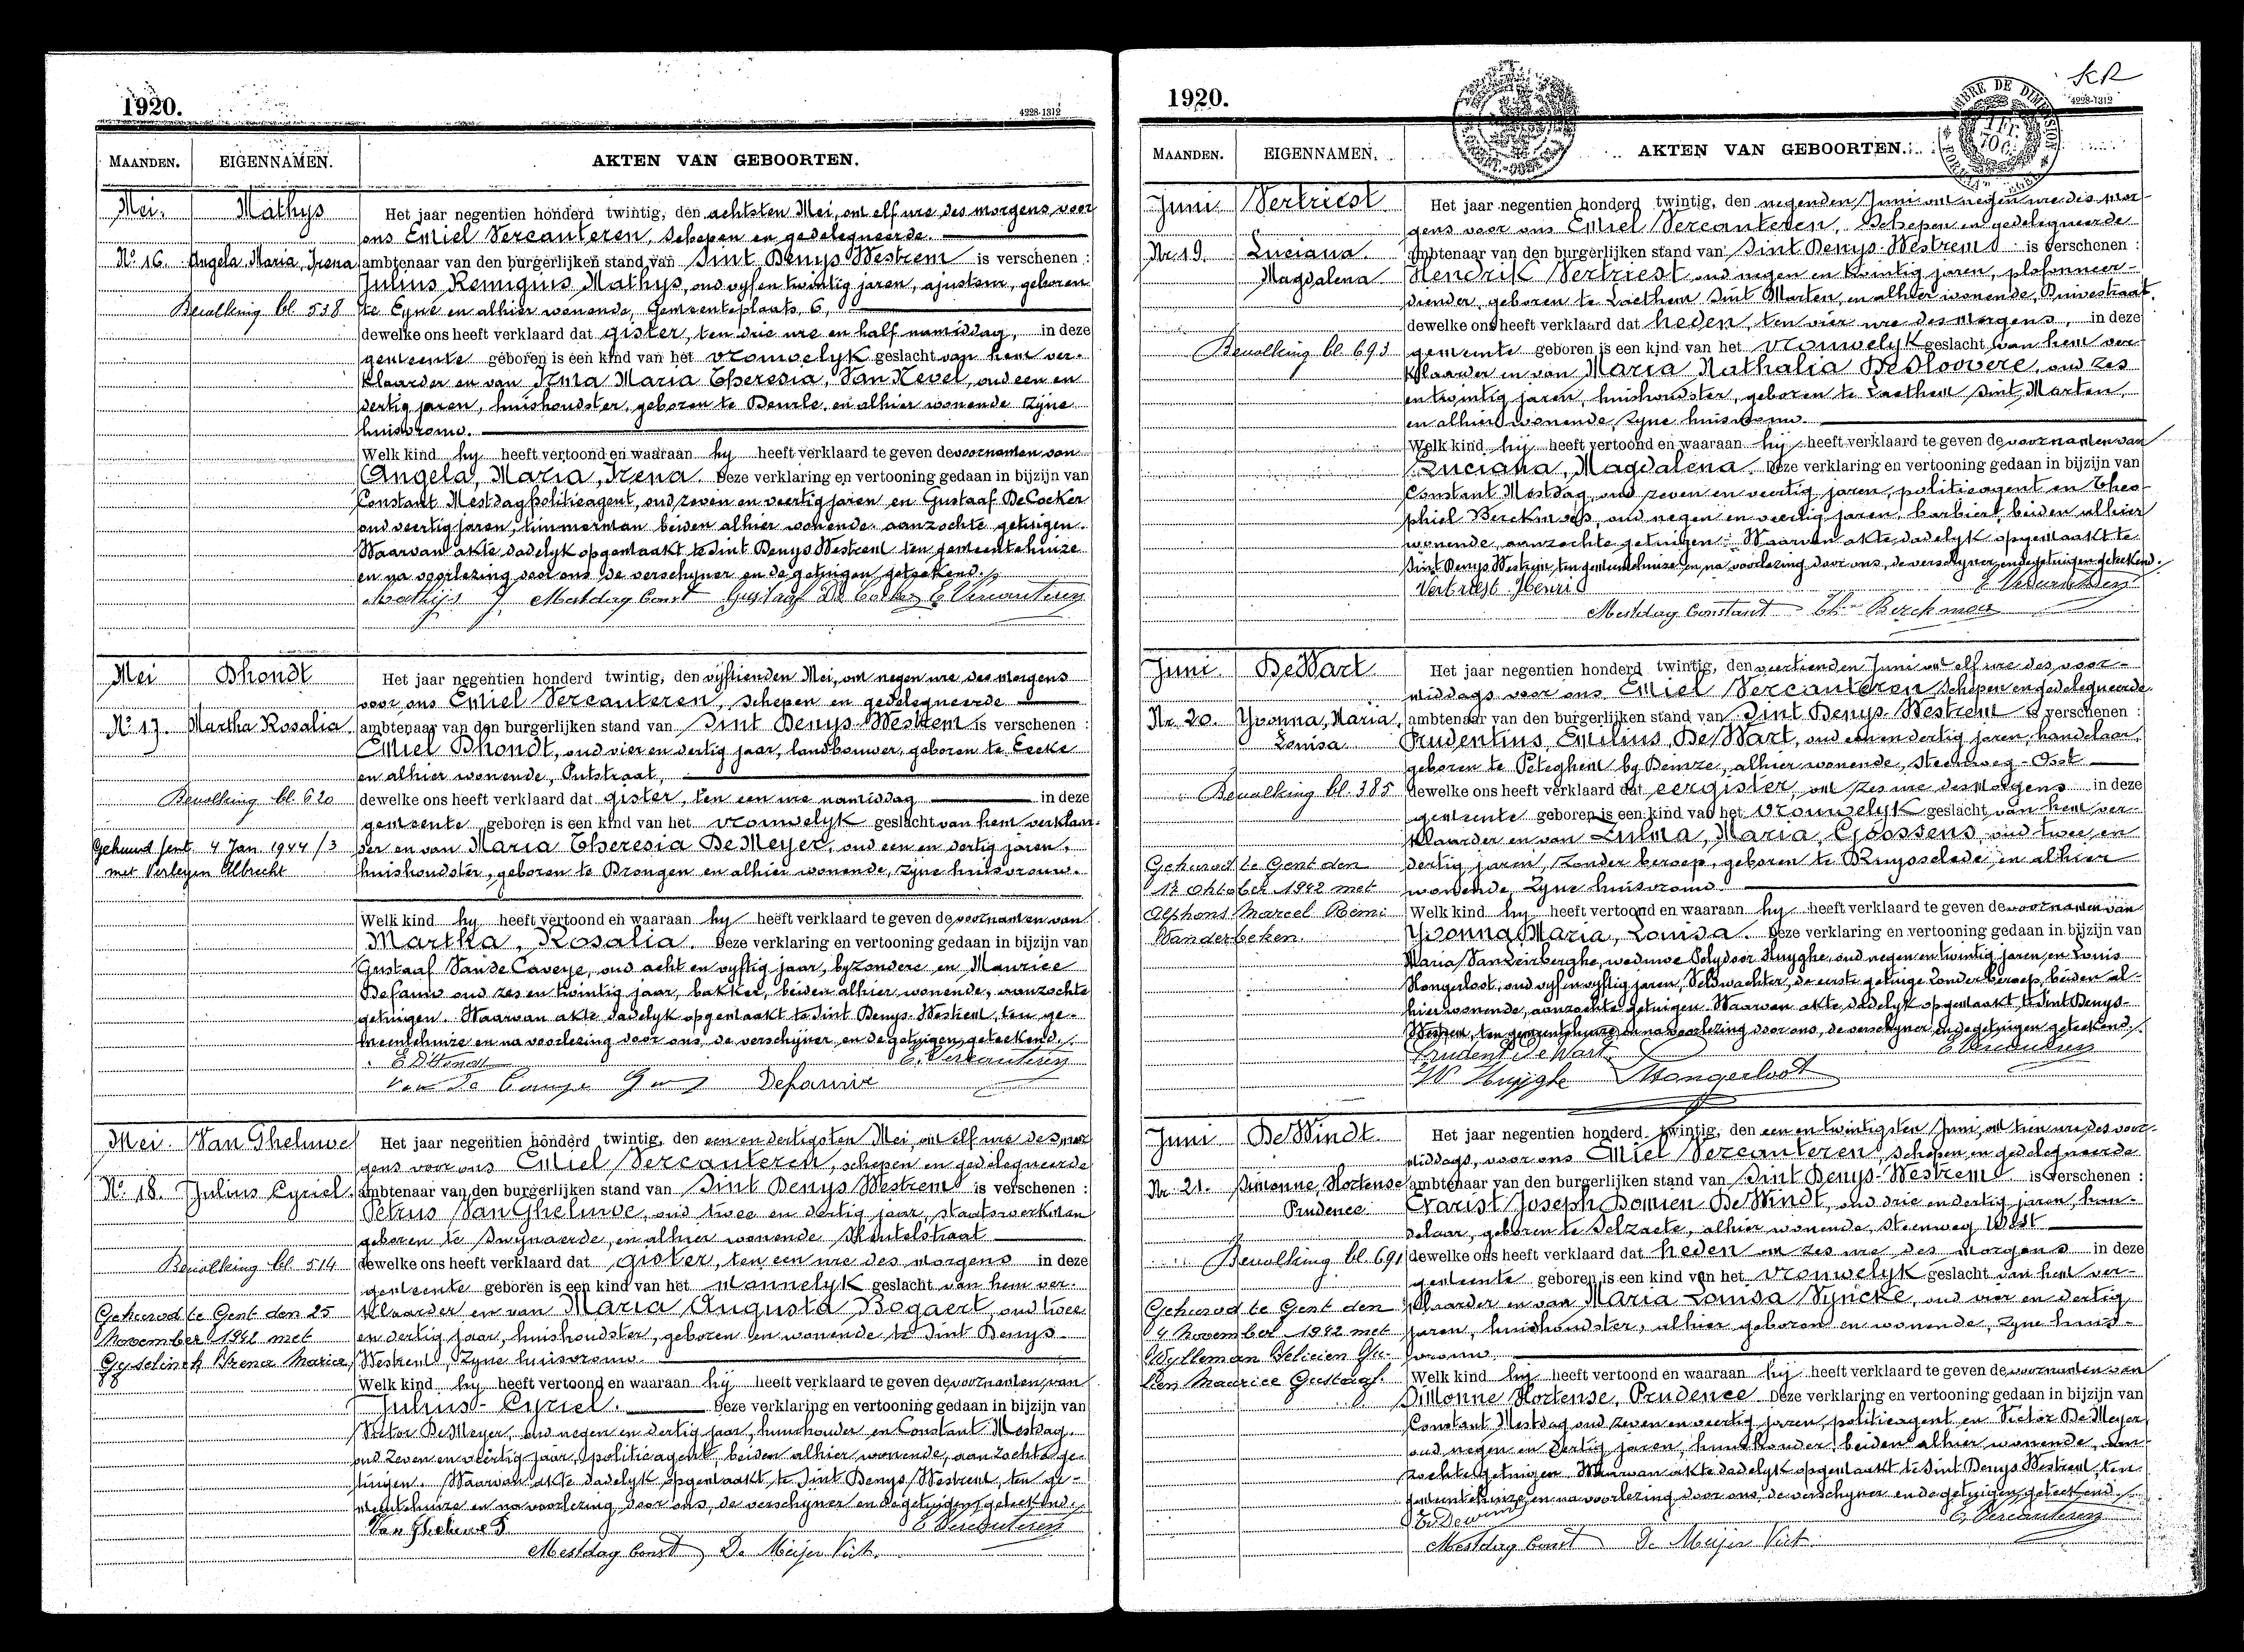 1920.
4228-1312
MAANDEN. EIGENNAMEN. AKTEN VAN GEBOORTEN.
Mei. Mathys Het jaar negentien honderd twintig, den achtsten Mei, om elf ure des morgens voor
ons Emiel Vercauteren, schepen en gedelegueerde
No 16. Angela Maria, Irena ambtenaar van den burgerlijken stand van Sint Denys Westrem is verschenen :
Julius Remigius Mathys, oud vyf en twintig jaren, ajusteur, geboren
Bevolking bl. 538 te Eyne en alhier wonende, Gemeenteplaats, 6,
dewelke ons heeft verklaard dat gister, ten drie ure en half namiddag, in deze
gemeente geboren is een kind van het vrouwelyk geslacht van hem ver-
klaarder en van Irma Maria Theresia, Van Nevel, oud een en
dertig jaren, huishoudster, geboren te Deurle, en alhier wonende zyne
huisvrouw.
Welk kind hy heeft vertoond en waaraan hy heeft verklaard te geven de voornamen van
Angela, Maria, Irena. Deze verklaring en vertooning gedaan in bijzijn van
Constant Mestdag politieagent, oud zeven en veertig jaren en Gustaaf De Cocker
oud veertig jaren, timmerman beiden alhier wonende aanzochte getuigen.
Waarvan akte dadelyk opgemaakt te Sint Denys Westrem ten gemeentehuize
en na voorlezing door ons de verschyner en de getuigen geteekend.
Mathijs J Mestdag Const Gustaaf De Cocker E Vercauteren
Mei Dhondt Het jaar negentien honderd twintig, den vyftienden Mei, om negen ure des morgens
voor ons Emiel Vercauteren, schepen en gedelegueerde
No 17. Martha Rosalia ambtenaar van den burgerlijken stand van Sint Denys-Westrem is verschenen :
Emiel Dhondt, oud vier en dertig jaar, landbouwer, geboren te Eecke
en alhier wonende, Putstraat,
Bevolking bl 620 dewelke ons heeft verklaard dat gister, ten een ure namiddag in deze
gemeente geboren is een kind van het vrouwelyk geslacht van hem verklaar-
Gehuwd Gent 4 Jan. 1944/3 der en van Maria Theresia De Meyer, oud een en dertig jaren,
met Verleyen Albrecht huishoudster, geboren te Drongen en alhier wonende, zyne huisvrouw.
Welk kind hy heeft vertoond en waaraan hy heeft verklaard te geven de voornamen van
Martha, Rosalia. Deze verklaring en vertooning gedaan in bijzijn van
Gustaaf Van de Caveye, oud acht en vyftig jaar, byzondere en Maurice
Defauw oud zes en twintig jaar, bakker, beiden alhier wonende, aanzochte
getuigen. Waarvan akte dadelyk opgemaakt te Sint Denys-Westrem, ten ge-
meentehuize en na voorlezing door ons, de verschyner en de getuigen geteekend.
E DHondt E. Vercauteren
Mei. Van Gheluwe Het jaar negentien honderd twintig, den een en dertigsten Mei, om elf ure des mor
gens voor ons Emiel Vercauteren, schepen en gedelegueerde
No. 18. Julius Cyriel. ambtenaar van den burgerlijken stand van Sint Denys Westrem is verschenen :
Petrus Van Gheluwe, oud twee en dertig jaar, staatswerkman
geboren te Swynaerde, en alhier wonende Sleutelstraat
Bevolking bl 514 dewelke ons heeft verklaard dat gister, ten een ure des morgens in deze
gemeente geboren is een kind van het mannelyk geslacht van hem ver-
Gehuwd te Gent den 25 klaarder en van Maria Augusta Bogaert, oud twee
november 1942 met en dertig jaar, huishoudster, geboren en wonende te Sint Denys-
Gyselinck Irena Maria Westrem, zyne huisvrouw.
Welk kind hy heeft vertoond en waaraan hij heeft verklaard te geven de voornamen van
Julius- Cyriel. Deze verklaring en vertooning gedaan in bijzijn van
Victor De Meyer, oud negen en dertig jaar, huishouder en Constant Mestdag,
oud zeven en veertig jaar, politieagent, beiden alhier wonende, aanzochte ge-
tuigen. Waarvan akte dadelyk opgemaakt te Sint Denys Westrem, ten ge-
meentehuize en na voorlezing door ons, de verschyner en de getuigen geteekend.
Van Gheluwe P E Vercauteren
Mestdag Const De Meijer Vict.
1920.
4228-1312
MAANDEN. EIGENNAMEN. AKTEN VAN GEBOORTEN.
Juni Vertriest Het jaar negentien honderd twintig, den negenden Juni om negen ure des mor-
gens voor ons Emiel Vercauteren, schepen en gedelegueerde
Nr. 19. Luciana. ambtenaar van den burgerlijken stand van Sint Denys-Westrem is verschenen :
Magdalena Hendrik Vertriest oud negen en twintig jaren, plafonneer-
diender, geboren te Laethem Sint Marten, en alhier wonende,
dewelke ons heeft verklaard dat heden, ten vier ure des morgens, in deze
Bevolking bl. 693 gemeente geboren is een kind van het vrouwelyk geslacht van hem ver-
klaarder en van Maria Nathalia De Sloovere, oud zes
en twintig jaren, huishoudster, geboren te Laethem Sint Marten,
en alhier wonende, zyne huisvrouw.
Welk kind hij heeft vertoond en waaraan hij heeft verklaard te geven de voornamen van
Luciana, Magdalena. Deze verklaring en vertooning gedaan in bijzijn van
Constant Mestdag, oud zeven en veertig jaren, politieagent en Theo-
phiel Berckmoes, oud negen en veertig jaren, barbier, beiden alhier
wonende, aanzochte getuigen. Waarvan akte dadelyk opgemaakt te
Sint Denys Westrem, ten gemeentehuize en na voorlezing door ons, de verschyner en de getuigen geteekend.
Vertriest Henri E Vercauteren
Mestdag Constant Th. Berckmoes
Juni De Wart Het jaar negentien honderd twintig, den veertienden Juni om elf ure des voor-
middags voor ons Emiel Vercauteren schepen en gedelegueerde
Nr. 20. Yvonna, Maria, ambtenaar van den burgerlijken stand van Sint Denys-Westrem is verschenen :
Louisa Prudentius, Emilius, De Wart, oud een en dertig jaren, handelaar,
geboren te Peteghem by Deinze, alhier wonende, Steenweg-Oost
Bevolking bl. 385 dewelke ons heeft verklaard dat eergister, om zes ure des morgens in deze
gemeente geboren is een kind van het vrouwelyk geslacht van hem ver-
klaarder en van Zulma, Maria, Goossens, oud twee en
Gehuwd te Gent den dertig jaren, zonder beroep, geboren te Ruysselede en alhier
12 oktober 1942 met wonende, zyne huisvrouw.
Alphons Marcel Remi Welk kind hy heeft vertoond en waaraan hy heeft verklaard te geven de voornamen van
Wanderbeken. Yvonna, Maria, Louisa. Deze verklaring en vertooning gedaan in bijzijn van
Maria weduwe Polydoor Huyghe, oud negen en twintig jaren, en Louis
Hongerloot, oud vyf en vyftig jaren, Veldwachter, de eerste getuige zonder beroep, beiden al-
hier wonende, aanzochte getuigen. Waarvan akte dadelyk opgemaakt te Sint Denys-
Westrem, ten gemeentehuize en na voorlezing door ons, de verschyner en de getuigen geteekend.
Prudent De Wart E Vercauteren
W Huyghe Hongerloot
Juni De Windt. Het jaar negentien honderd twintig, den een en twintigsten Juni, om tien ure des voor-
middags, voor ons Emiel Vercauteren, schepen en gedelegueerde
Nr. 21. Simonne, Hortense ambtenaar van den burgerlijken stand van Sint Denys-Westrem is verschenen :
Prudence Evarist Joseph Domien De Windt, oud drie en dertig jaren, han-
delaar, geboren te Selzaete, alhier wonende, Steenweg West
Bevolking bl. 691 dewelke ons heeft verklaard dat heden om zes ure des morgens in deze
gemeente geboren is een kind van het vrouwelyk geslacht van hem ver-
Gehuwd te Gent den klaarder en van Maria Louisa Syncke, oud vier en dertig
4 november 1942 met jaren, huishoudster, alhier geboren en wonende, zyne huis-
Wylleman Felicien vrouw.
Maurice Gustaaf. Welk kind hij heeft vertoond en waaraan hij heeft verklaard te geven de voornamen van
Simonne Hortense, Prudence Deze verklaring en vertooning gedaan in bijzijn van
Constant Mestdag oud zeven en veertig jaren, politieagent en Victor De Meyer
oud negen en dertig jaren, huishouder, beiden alhier wonende, aan-
zochte getuigen. Waarvan akte dadelyk opgemaakt te Sint Denys Westrem, ten
gemeentehuize, en na voorlezing door ons, de verschyner en de getuigen geteekend.
E. Vercauteren
Mestdag Const De Meijer Vict.